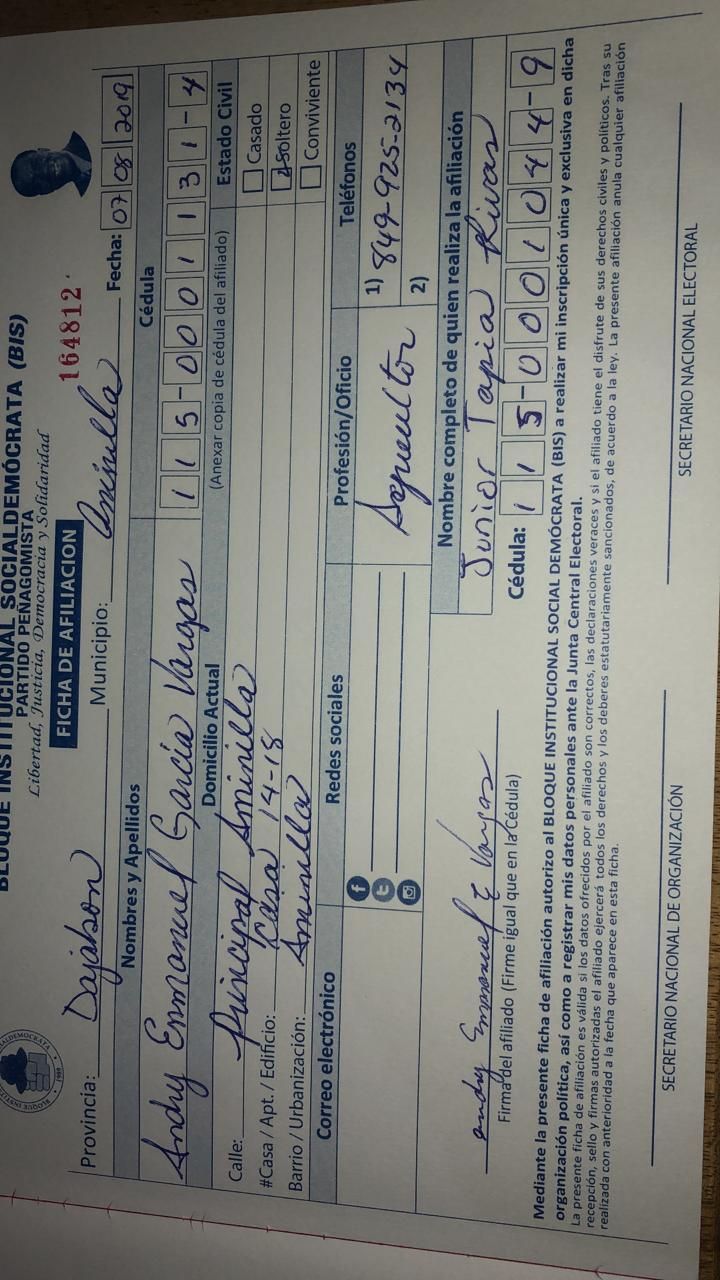 BLOQUE INSTITUCIONAL SOCIALDEMÓCRATA (BIS)
PARTIDO PEÑAGOMISTA
Libertad, Justicia, Democracia y Solidaridad
FICHA DE AFILIACION
164812
Provincia: Dajabon Municipio: Aminilla Fecha: 07 08 2019
Nombres y Apellidos Cédula
Andry Enmanuel García Vargas 115-0001131-4
Domicilio Actual (Anexar copia de cédula del afiliado) Estado Civil
Calle: principal Aminilla Casado
#Casa / Apt. / Edificio: Casa 14-18 Soltero
Barrio / Urbanización: Aminilla Conviviente
Correo electrónico Redes sociales Profesión/Oficio Teléfonos
1) 849-925-2134
2)
Nombre completo de quien realiza la afiliación
Junior Tapia Rivas
andry Emmanuel E Vargas
Firma del afiliado (Firme igual que en la Cédula) Cédula: 115-0001044-9
Mediante la presente ficha de afiliación autorizo al BLOQUE INSTITUCIONAL SOCIAL DEMÓCRATA (BIS) a realizar mi inscripción única y exclusiva en dicha
organización política, así como a registrar mis datos personales ante la Junta Central Electoral.
La presente ficha de afiliación es válida si los datos ofrecidos por el afiliado son correctos, las declaraciones veraces y si el afiliado tiene el disfrute de sus derechos civiles y políticos. Tras su
recepción, sello y firmas autorizadas el afiliado ejercerá todos los derechos y los deberes estatutariamente sancionados, de acuerdo a la ley. La presente afiliación anula cualquier afiliación
realizada con anterioridad a la fecha que aparece en esta ficha.
SECRETARIO NACIONAL DE ORGANIZACIÓN SECRETARIO NACIONAL ELECTORAL